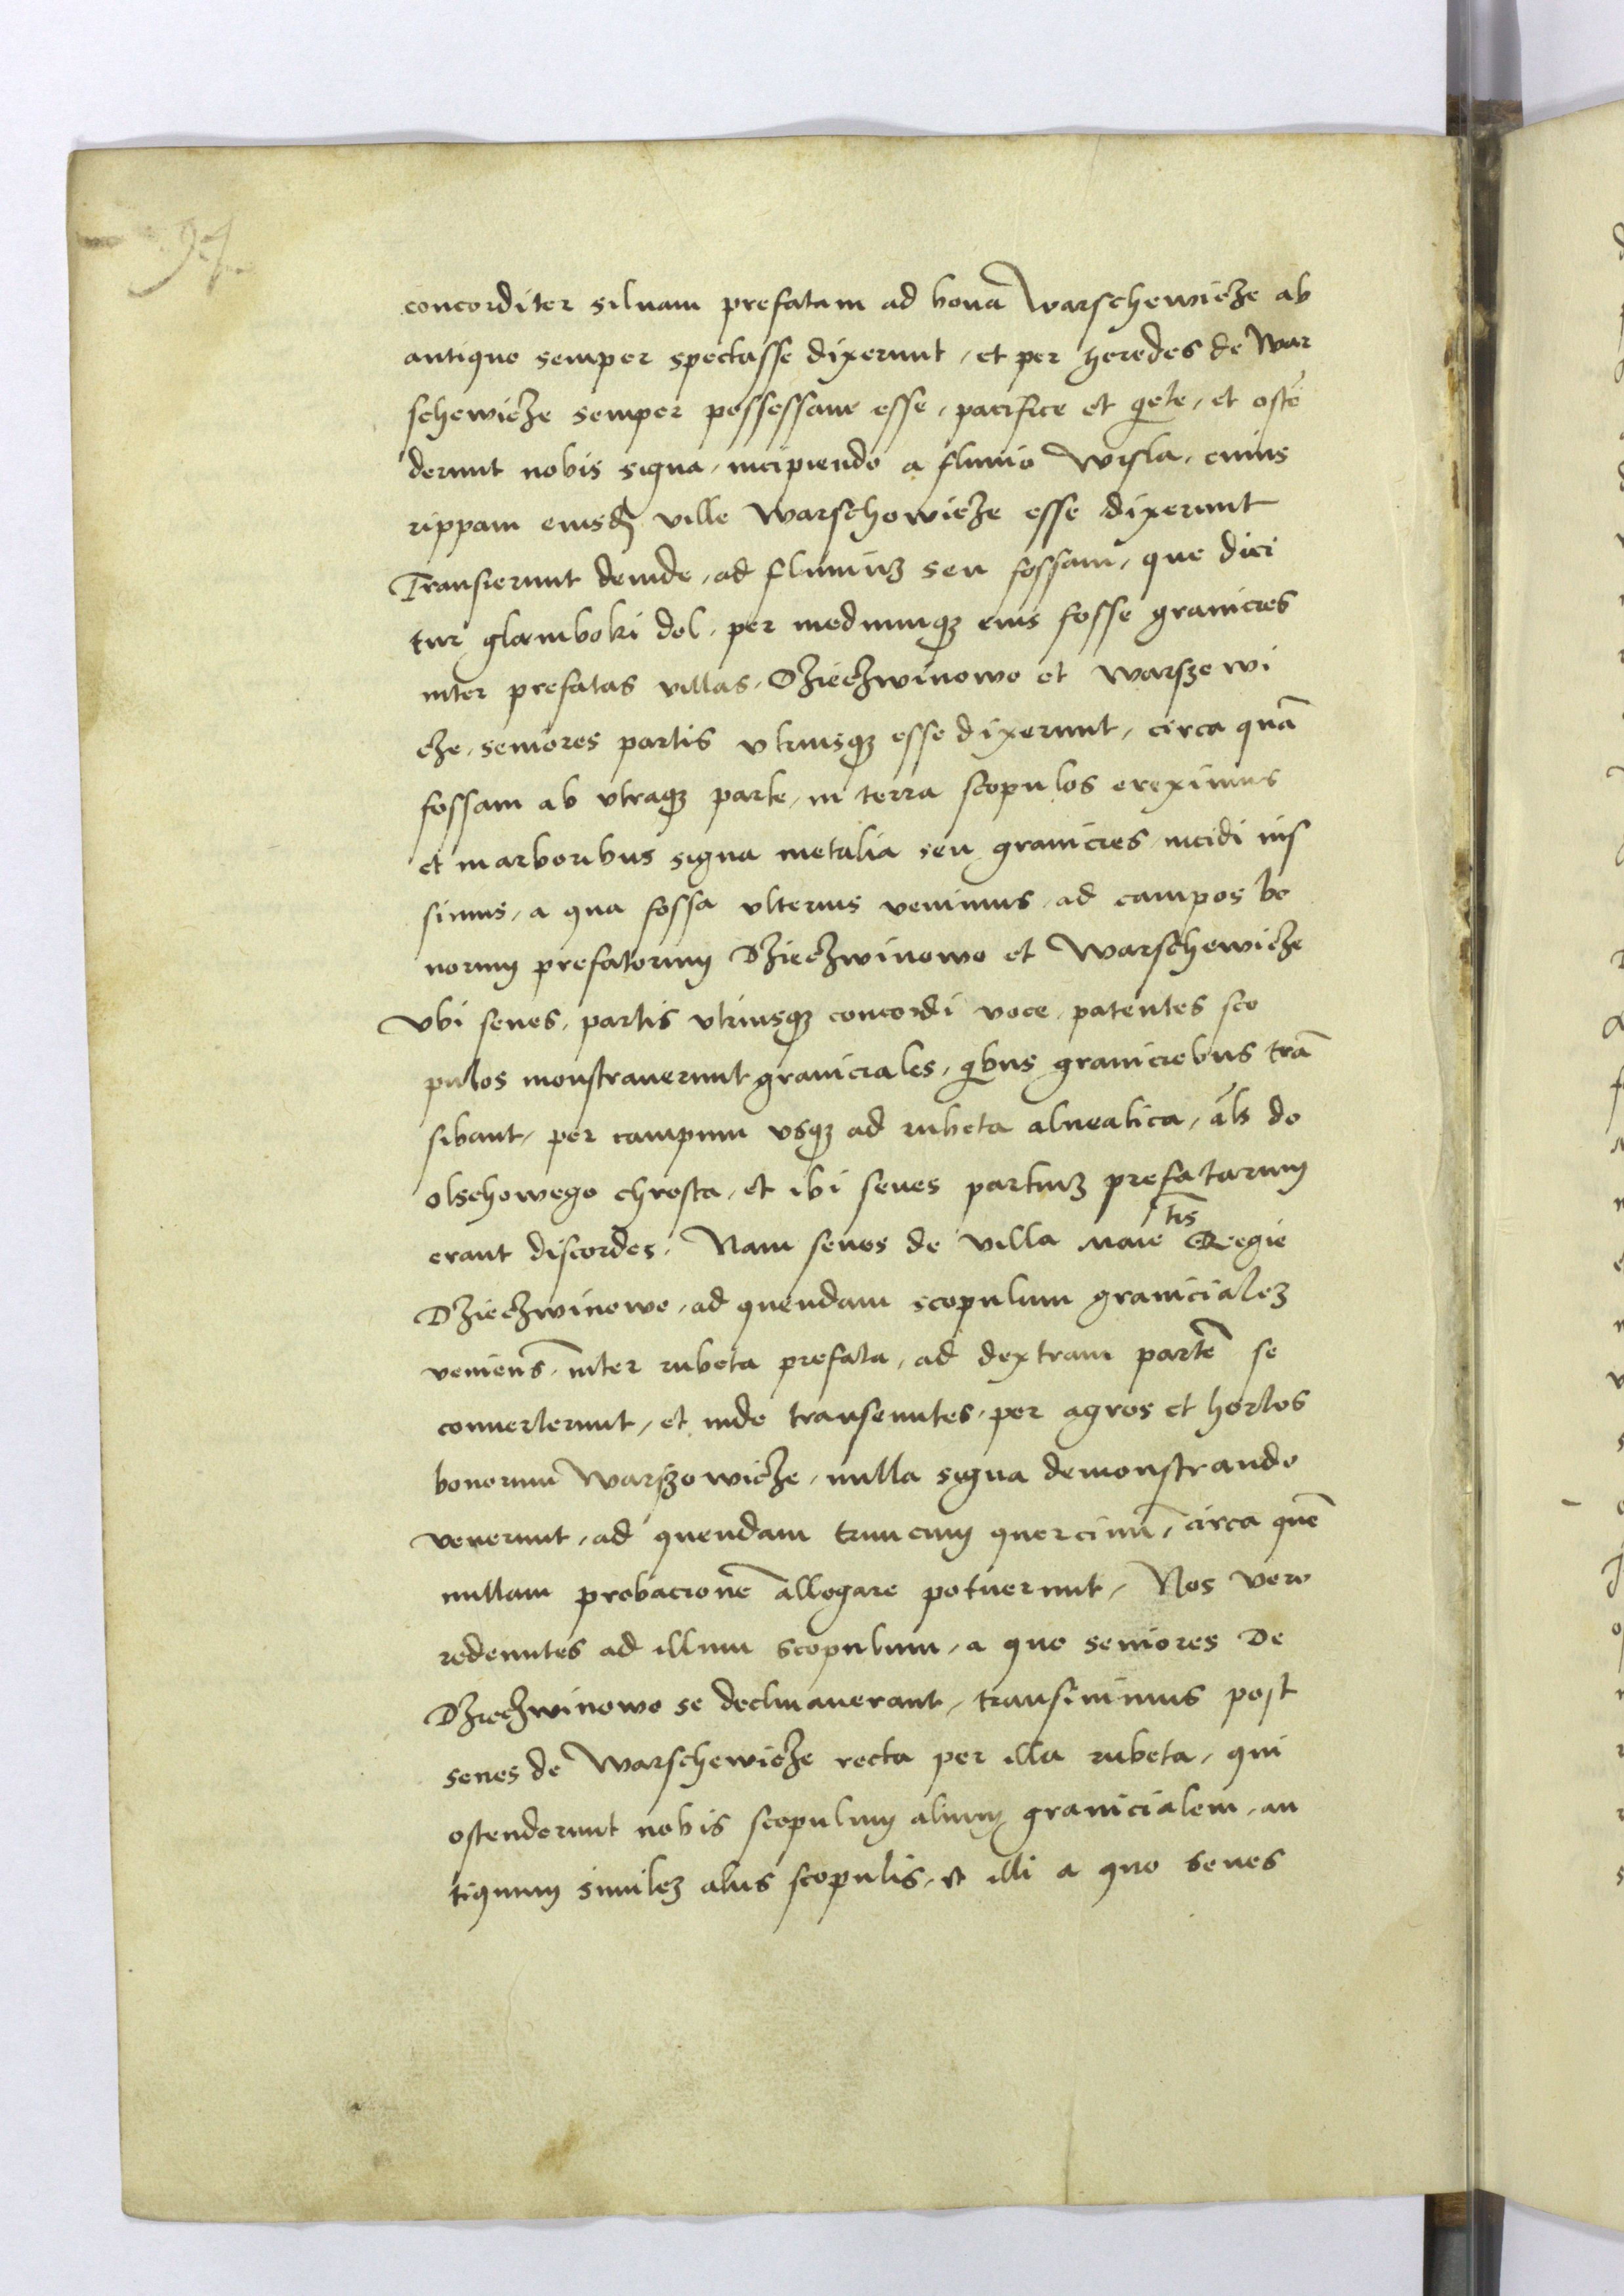 94
concorditer siluam prefatam ad bona Warschewicze ab
antiquo semper spectasse dixerunt, et per heredes de War
schewicze semper possessam esse, pacifice et q̇ete, et ostē
derunt nobis signa, incipiendo a fluuio Wisla, cuius
rippam eiusdꝫ ville Warschewicze esse dixerunt
Transierunt deinde, ad fluuiuꝫ seu fossam, que dici
tur glamboki dol, per mediumqꝫ eius fosse granicies
inter prefatas villas, Dzieczwinowo et Warszewi
cze, seniores partis vtriusqꝫ esse dixerunt, circa quā
fossam ab vtraqꝫ parte, in terra scopulos ereximus
et in arboribus signa metalia seu granicies incidi ius
simus, a qua fossa vlterius venimus, ad campos bo
norum prefatorum Dzieczwinowo et Warschewicze
Vbi senes, partis vtriusqꝫ concordi voce, patentes sco
pulos monstrauerunt graniciales, q̇bus graniciebus trā
sibant, per campum vsqꝫ ad rubeta alneatica, al̄s do
olschowego chrosta, et ibi senes partiuꝫ prefatarum
erant discordes, Nam senes de villa Maie^tis Regie
Dzieczwinowo, ad quendam scopulum granicialeꝫ
veniens̄, inter rubeta prefata, ad dextram partē se
conuerterunt, et inde transeuntes, per agros et hortos
bonorum Warszowicze, nulla signa demonstrando
venerunt, ad quendam truncum quercinū, circa quē
nullam probacionē allegare potuerunt, Nos vero
redeuntes ad illum scopulum, a quo seniores De
Dzieczwinowo se declinauerant, transiuimus post
senes de Warschewicze recta per illa rubeta, qui
ostenderunt nobis scopulum alium granicialem, an
tiquum simileꝫ aliis scopulis, et illi a quo senes